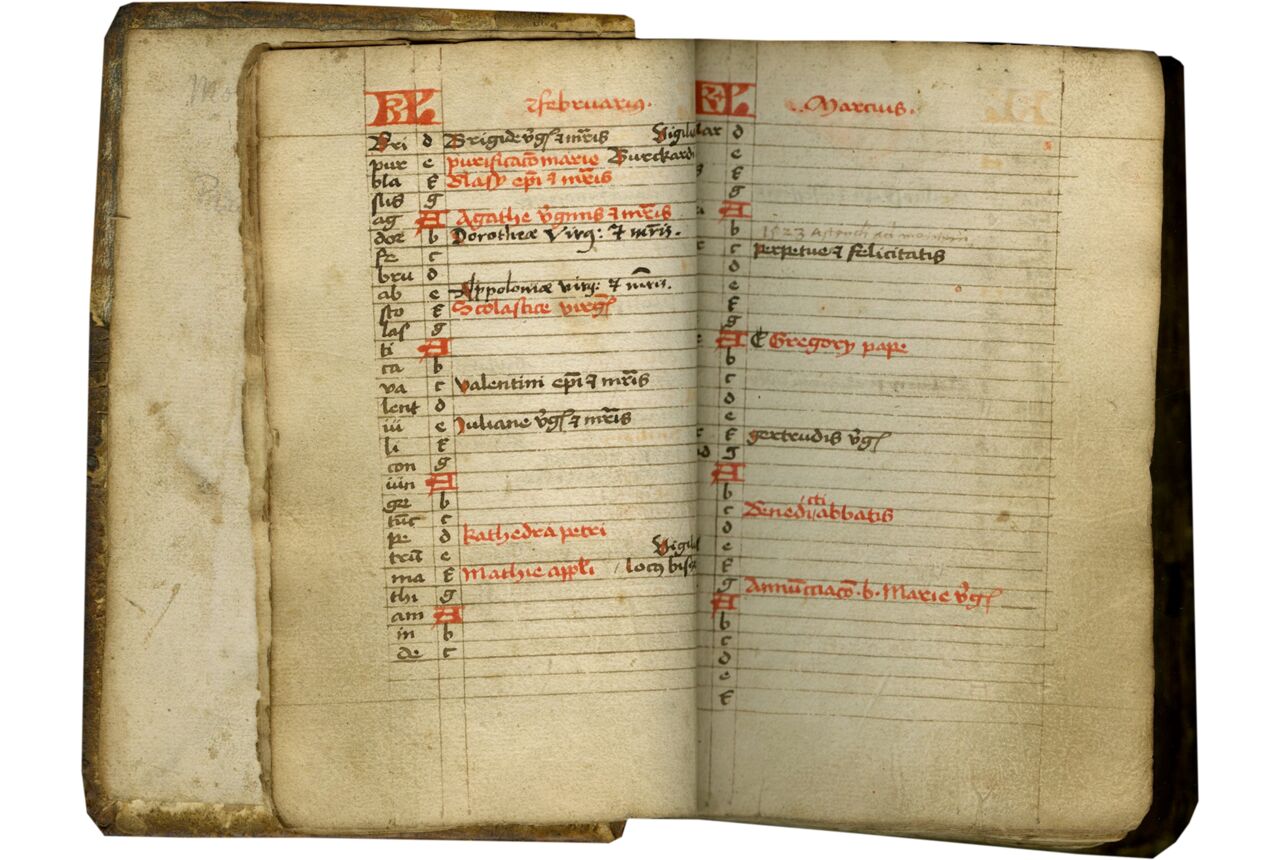 KL februarius.
Bri d Brigide v̄gɫ & mr̄is Vigil
pur e purificac̄o marie Burckardi
bla f Blasy ep̄i & mr̄is
sus g
ag A Agathe v̄ginis & mr̄is
dor b Dorotheæ Virg: & mr̄is.
fe c
bru d
ab e Appoloniæ virg: & mr̄is.
sto f Scolastice virgɫ
las g
ti A
ca b
va c valentini ep̄i & mr̄is
lent d
iu e Juliane v̄gɫ & mr̄is
li f
con g
iun A
gr b
tūc c
pe d kathedra petri
trū e Vigil
ma f Mathie app̄li / locꝰ biss
thi g
am A
in b
de c
KL Marcius.
Mar d
e
f
g
A
b 1523
c perpetue & felicitatis
d
e
f
g
A Gregory pape
b
c
d
e
f gertrudis v̄gɫ
g
A
b
c Benedicti abbatis
d
e
f
g Annūcciac̄o . b . Marie v̄gɫ
A
b
c
d
e
f